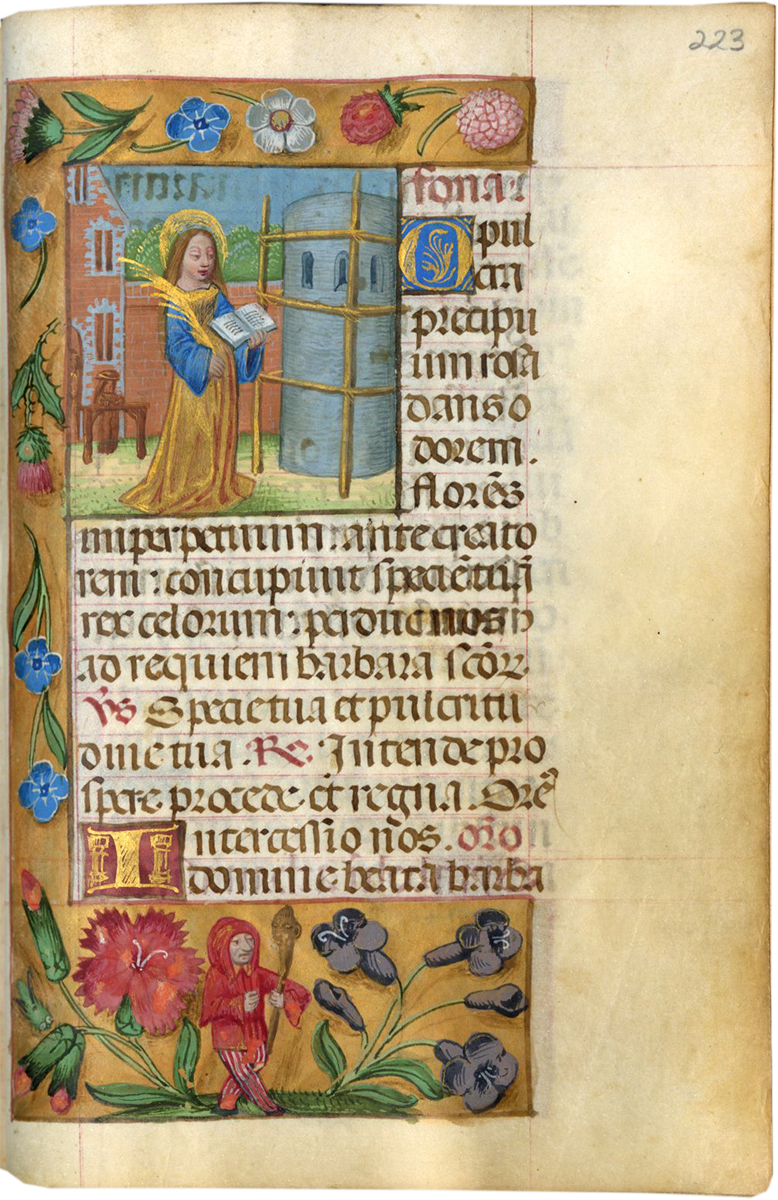 223
fona.
O pul
cri
precipu
um rosa
dans o
dorem.
florēs
in perpetuum: ante creato
rem: concupiuit specie tua
rex celorum: perduc nos
ad requiem barbara
v̄s Specie tua et pulcritu
dine tua. Re. Intende pro
spere procede et regna. Ore
Intercessio nos. oro
domine beata barba